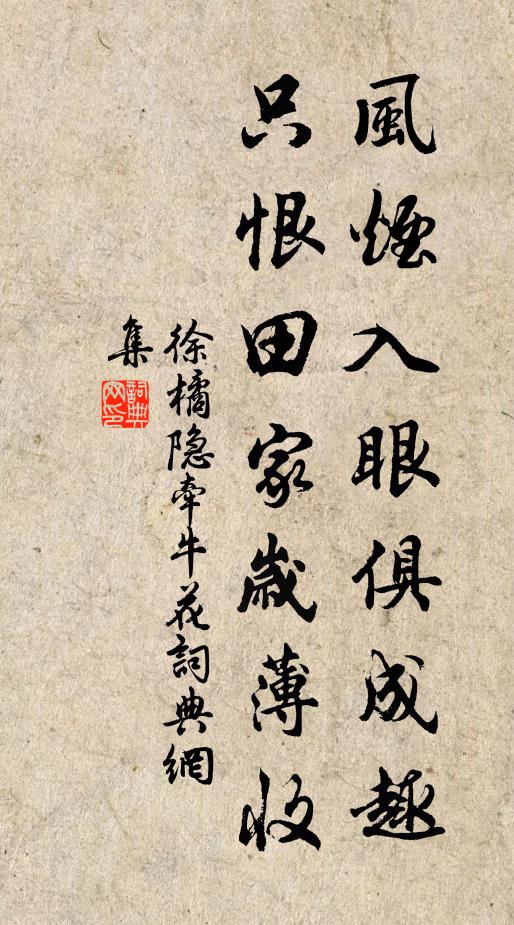 風煙入眼俱成趣
只恨田家歲薄收
徐橘隐牽牛花詞典網
集
詞典网印